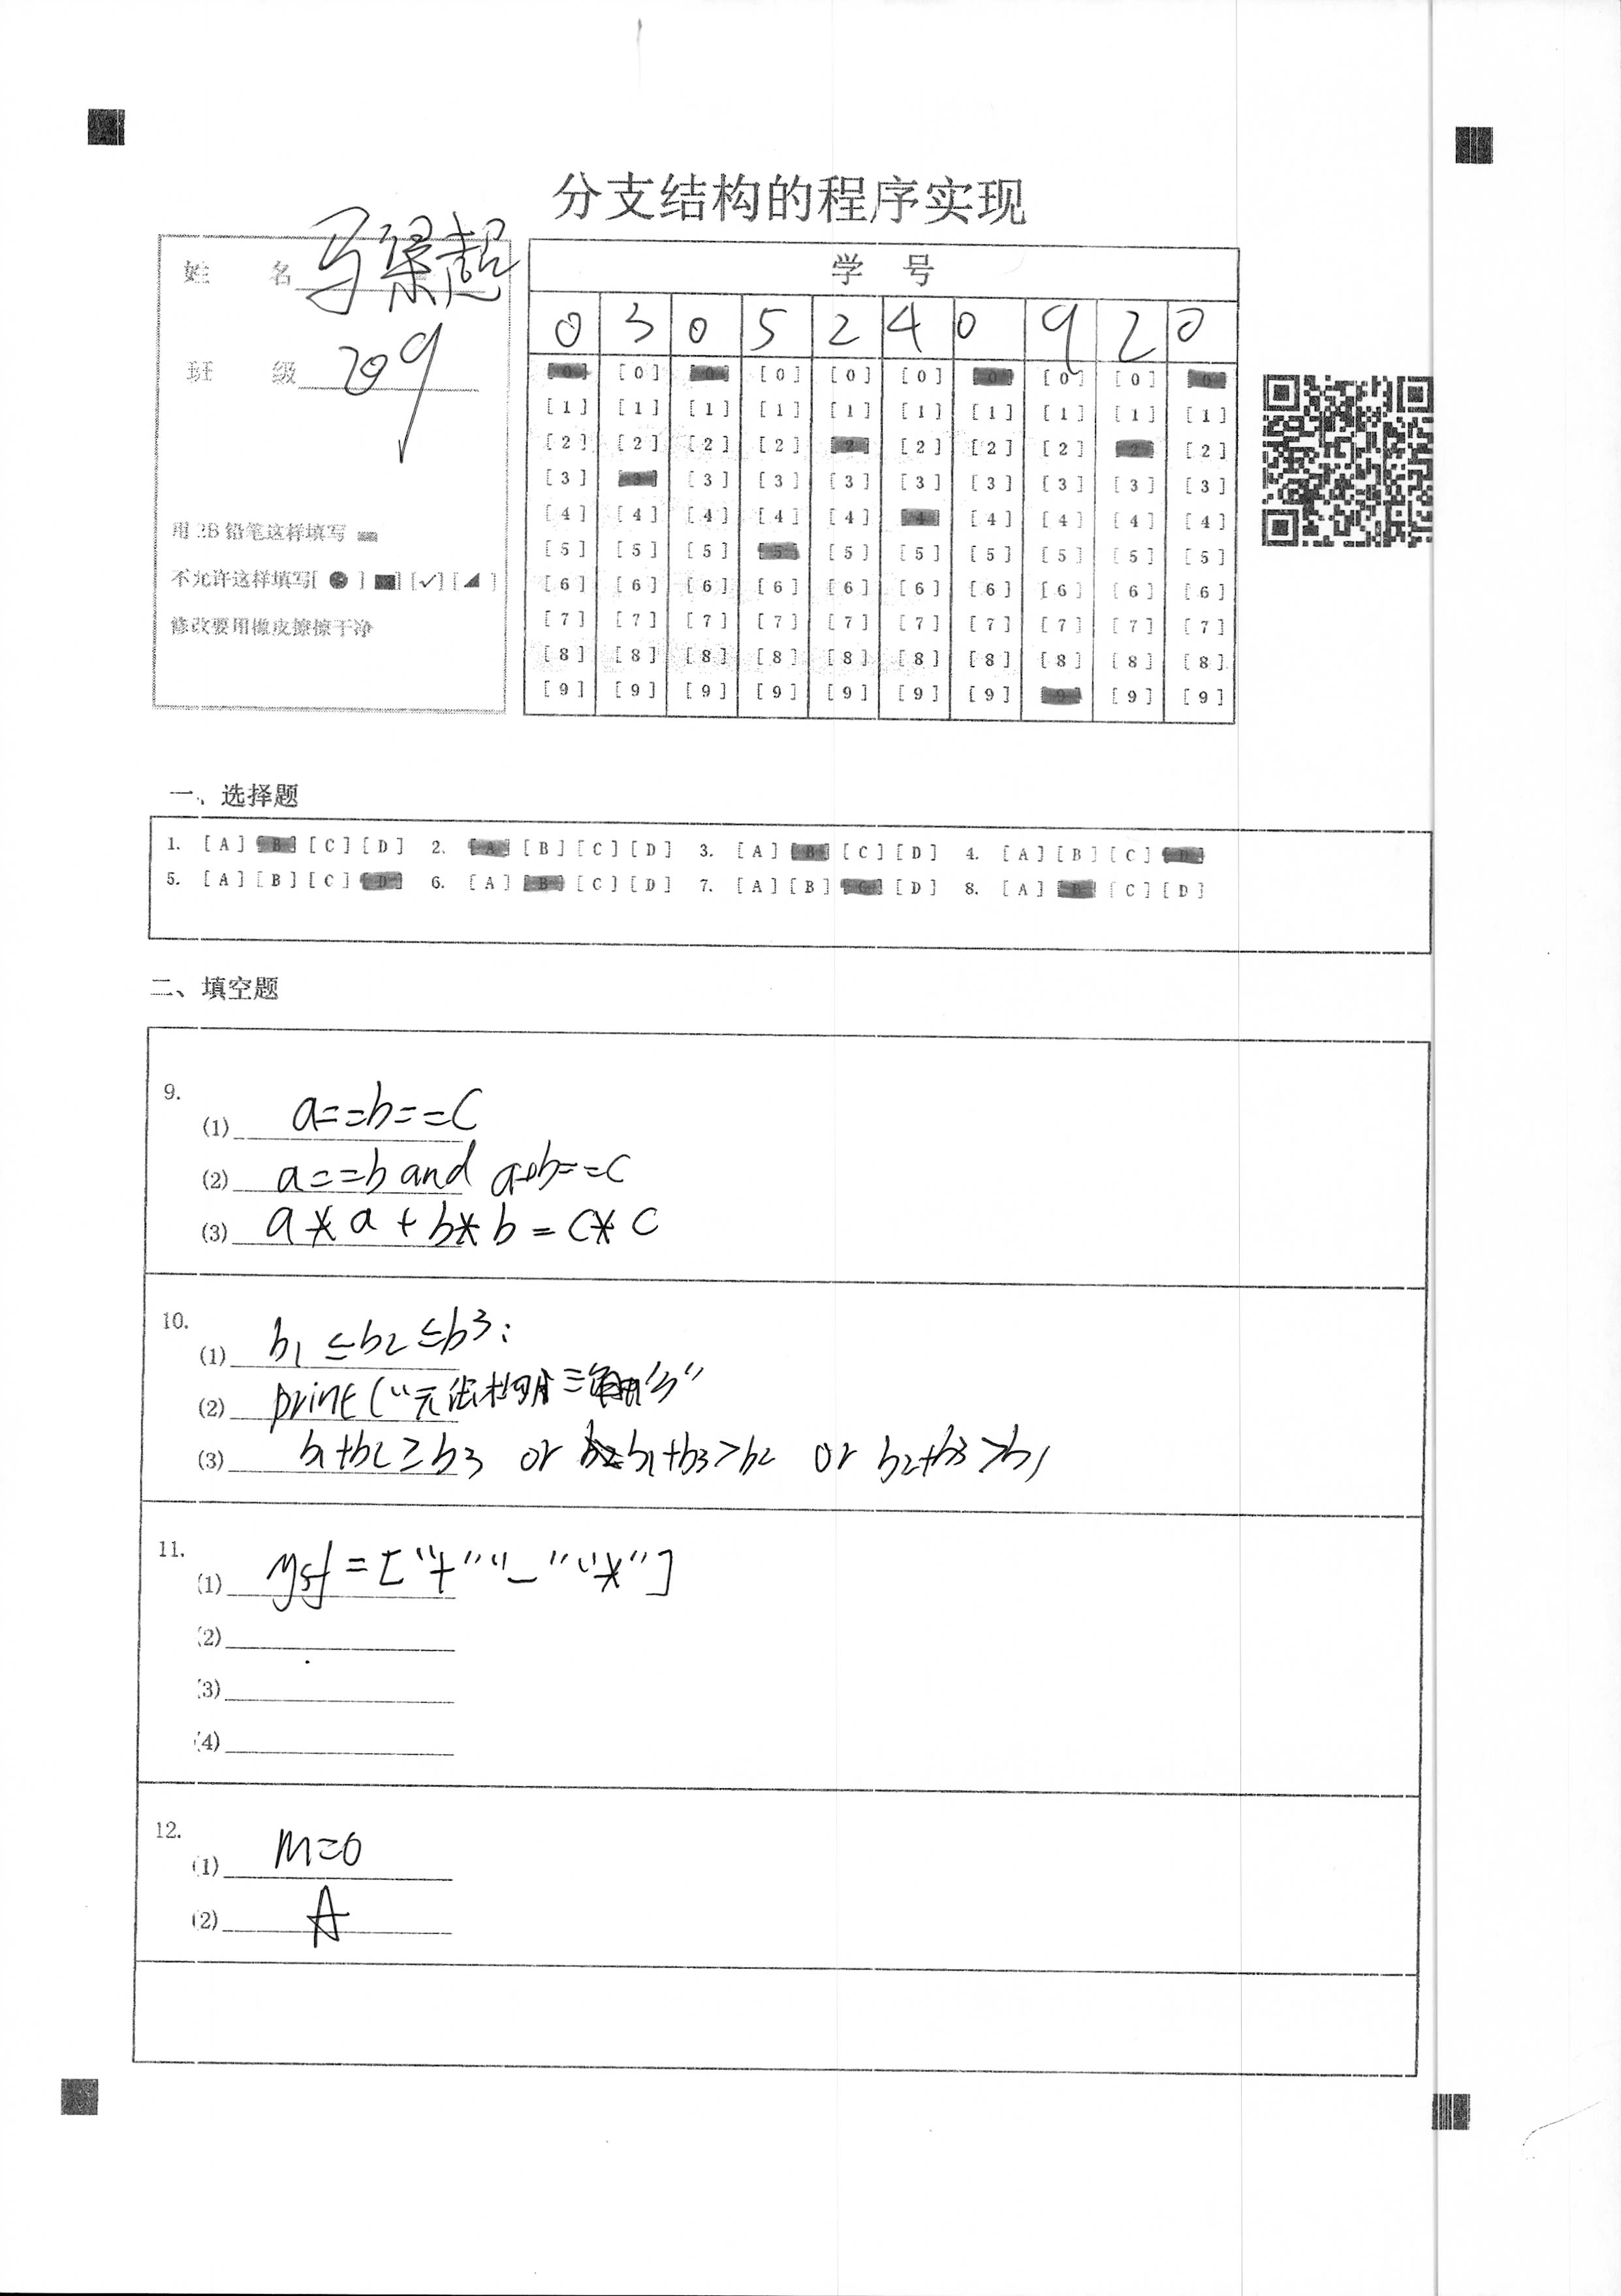 分支结构的程序实现
姓 名 马梁超
班 级 209
用2B铅笔这样填写
不允许这样填写[ ● ] ■] [✓] [◢ ]
修改要用橡皮擦擦干净
学 号
0 3 0 5 2 4 0 9 2 0
[0] [0] [0] [0] [0] [0] [0] [0] [0] [0]
[1] [1] [1] [1] [1] [1] [1] [1] [1] [1]
[2] [2] [2] [2] [2] [2] [2] [2] [2] [2]
[3] [3] [3] [3] [3] [3] [3] [3] [3] [3]
[4] [4] [4] [4] [4] [4] [4] [4] [4] [4]
[5] [5] [5] [5] [5] [5] [5] [5] [5] [5]
[6] [6] [6] [6] [6] [6] [6] [6] [6] [6]
[7] [7] [7] [7] [7] [7] [7] [7] [7] [7]
[8] [8] [8] [8] [8] [8] [8] [8] [8] [8]
[9] [9] [9] [9] [9] [9] [9] [9] [9] [9]
一、选择题
1. [A] [B] [C] [D] 2. [A] [B] [C] [D] 3. [A] [B] [C] [D] 4. [A] [B] [C] [D]
5. [A] [B] [C] [D] 6. [A] [B] [C] [D] 7. [A] [B] [C] [D] 8. [A] [B] [C] [D]
二、填空题
9.
(1) a==b==c
(2) a==b and a≠b==c
(3) a*a+b*b=c*c
10.
(1) b1≤b2≤b3:
(2) print("无法构成三角形"
(3) b1+b2≥b3 or b1+b3>b2 or b2+b3>b1
11.
(1) ysf=["+""-""*"]
(2)
(3)
(4)
12.
(1) m=0
(2) A